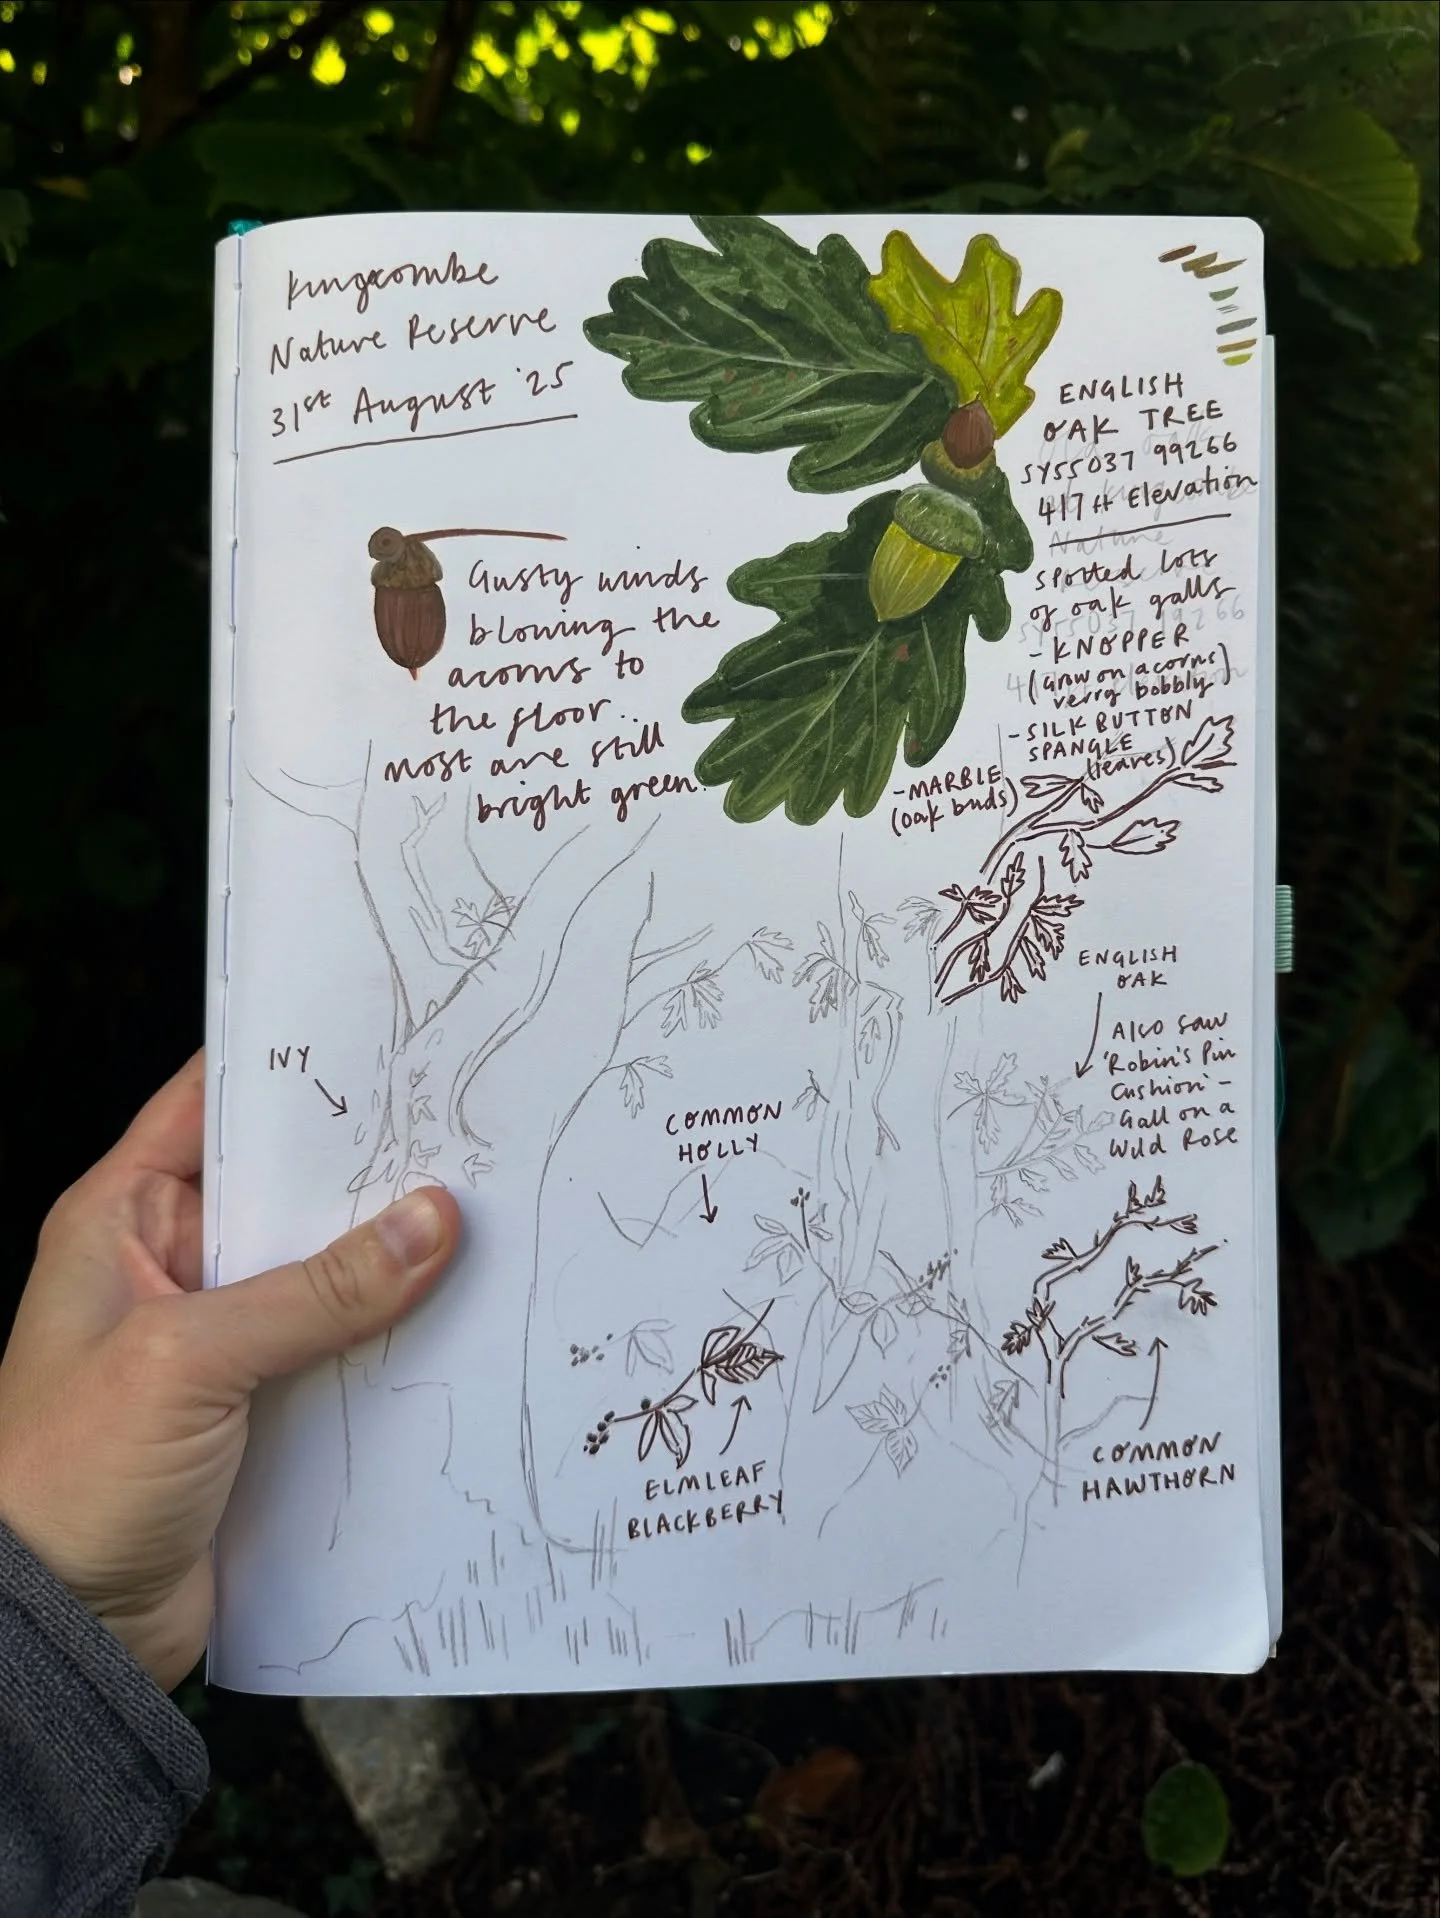 Kingcombe
Nature Reserve
31st August '25
ENGLISH
OAK TREE
SY55037 99266
417 ft Elevation
Spotted lots
of oak galls
- KNOPPER
(Grow on acorns)
verry bobbly
- SILK BUTTON
SPANGLE
(leaves)
- MARBLE
(oak buds)
Gusty winds
blowing the
acorns to
the floor..
Most are still
bright green.
ENGLISH
OAK
Also saw
'Robin's Pin
Cushion' -
Gall on a
Wild Rose
IVY
COMMON
HOLLY
ELMLEAF
BLACKBERRY
COMMON
HAWTHORN